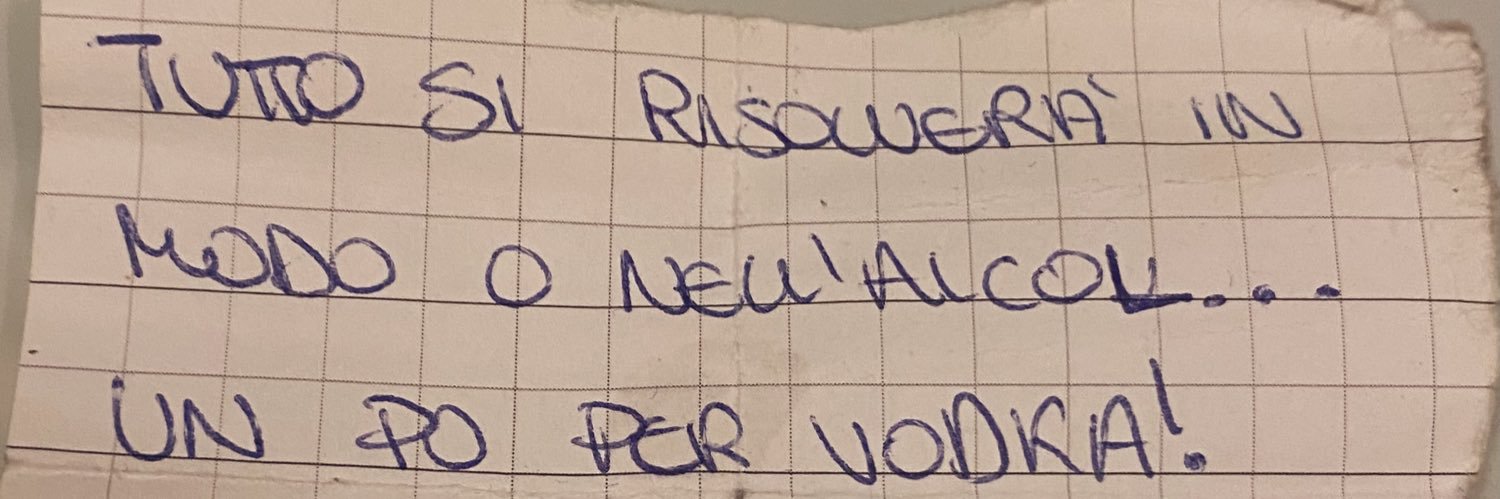 TUTTO SI RISOLVERÀ IN
MODO O NELL'ALCOL...
UN PO PER VODKA!